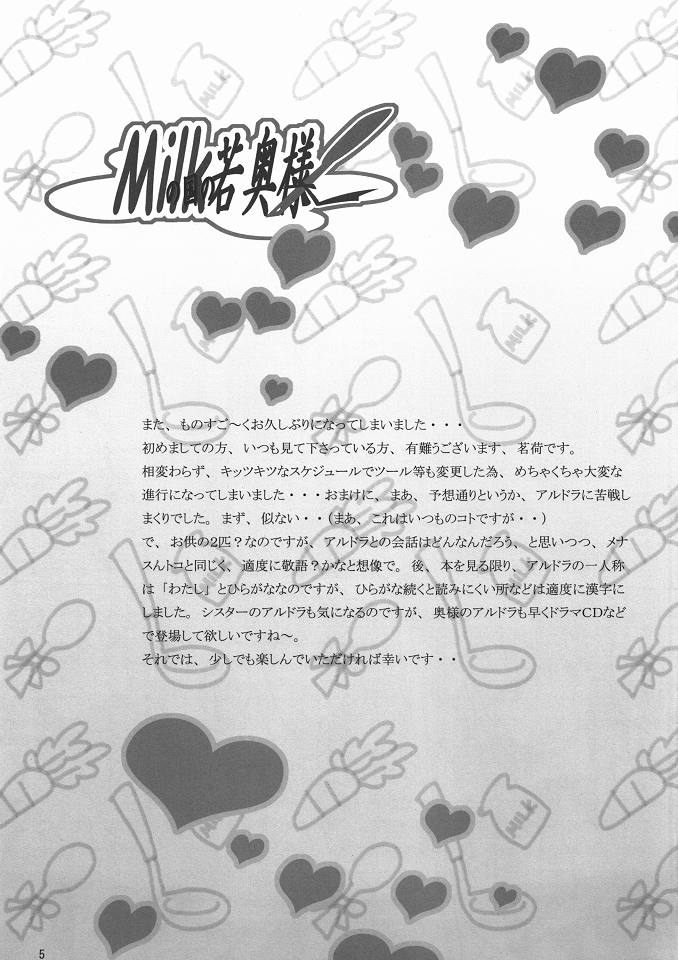 MILK
Milkの国の若奥様
MILK
MILK
また、ものすご～くお久しぶりになってしまいました・・・
初めましての方、いつも見て下さっている方、有難うございます、茗荷です。
相変わらず、キッツキツなスケジュールでツール等も変更した為、めちゃくちゃ大変な
進行になってしまいました・・・おまけに、まあ、予想通りというか、アルドラに苦戦し
まくりでした。まず、似ない・・（まあ、これはいつものコトですが・・）
で、お供の2匹？なのですが、アルドラとの会話はどんなんだろう、と思いつつ、メナ
スんトコと同じく、適度に敬語？かなと想像で。後、本を見る限り、アルドラの一人称
は「わたし」とひらがななのですが、ひらがな続くと読みにくい所などは適度に漢字に
しました。シスターのアルドラも気になるのですが、奥様のアルドラも早くドラマCDなど
で登場して欲しいですね～。
それでは、少しでも楽しんでいただければ幸いです・・
MILK
5